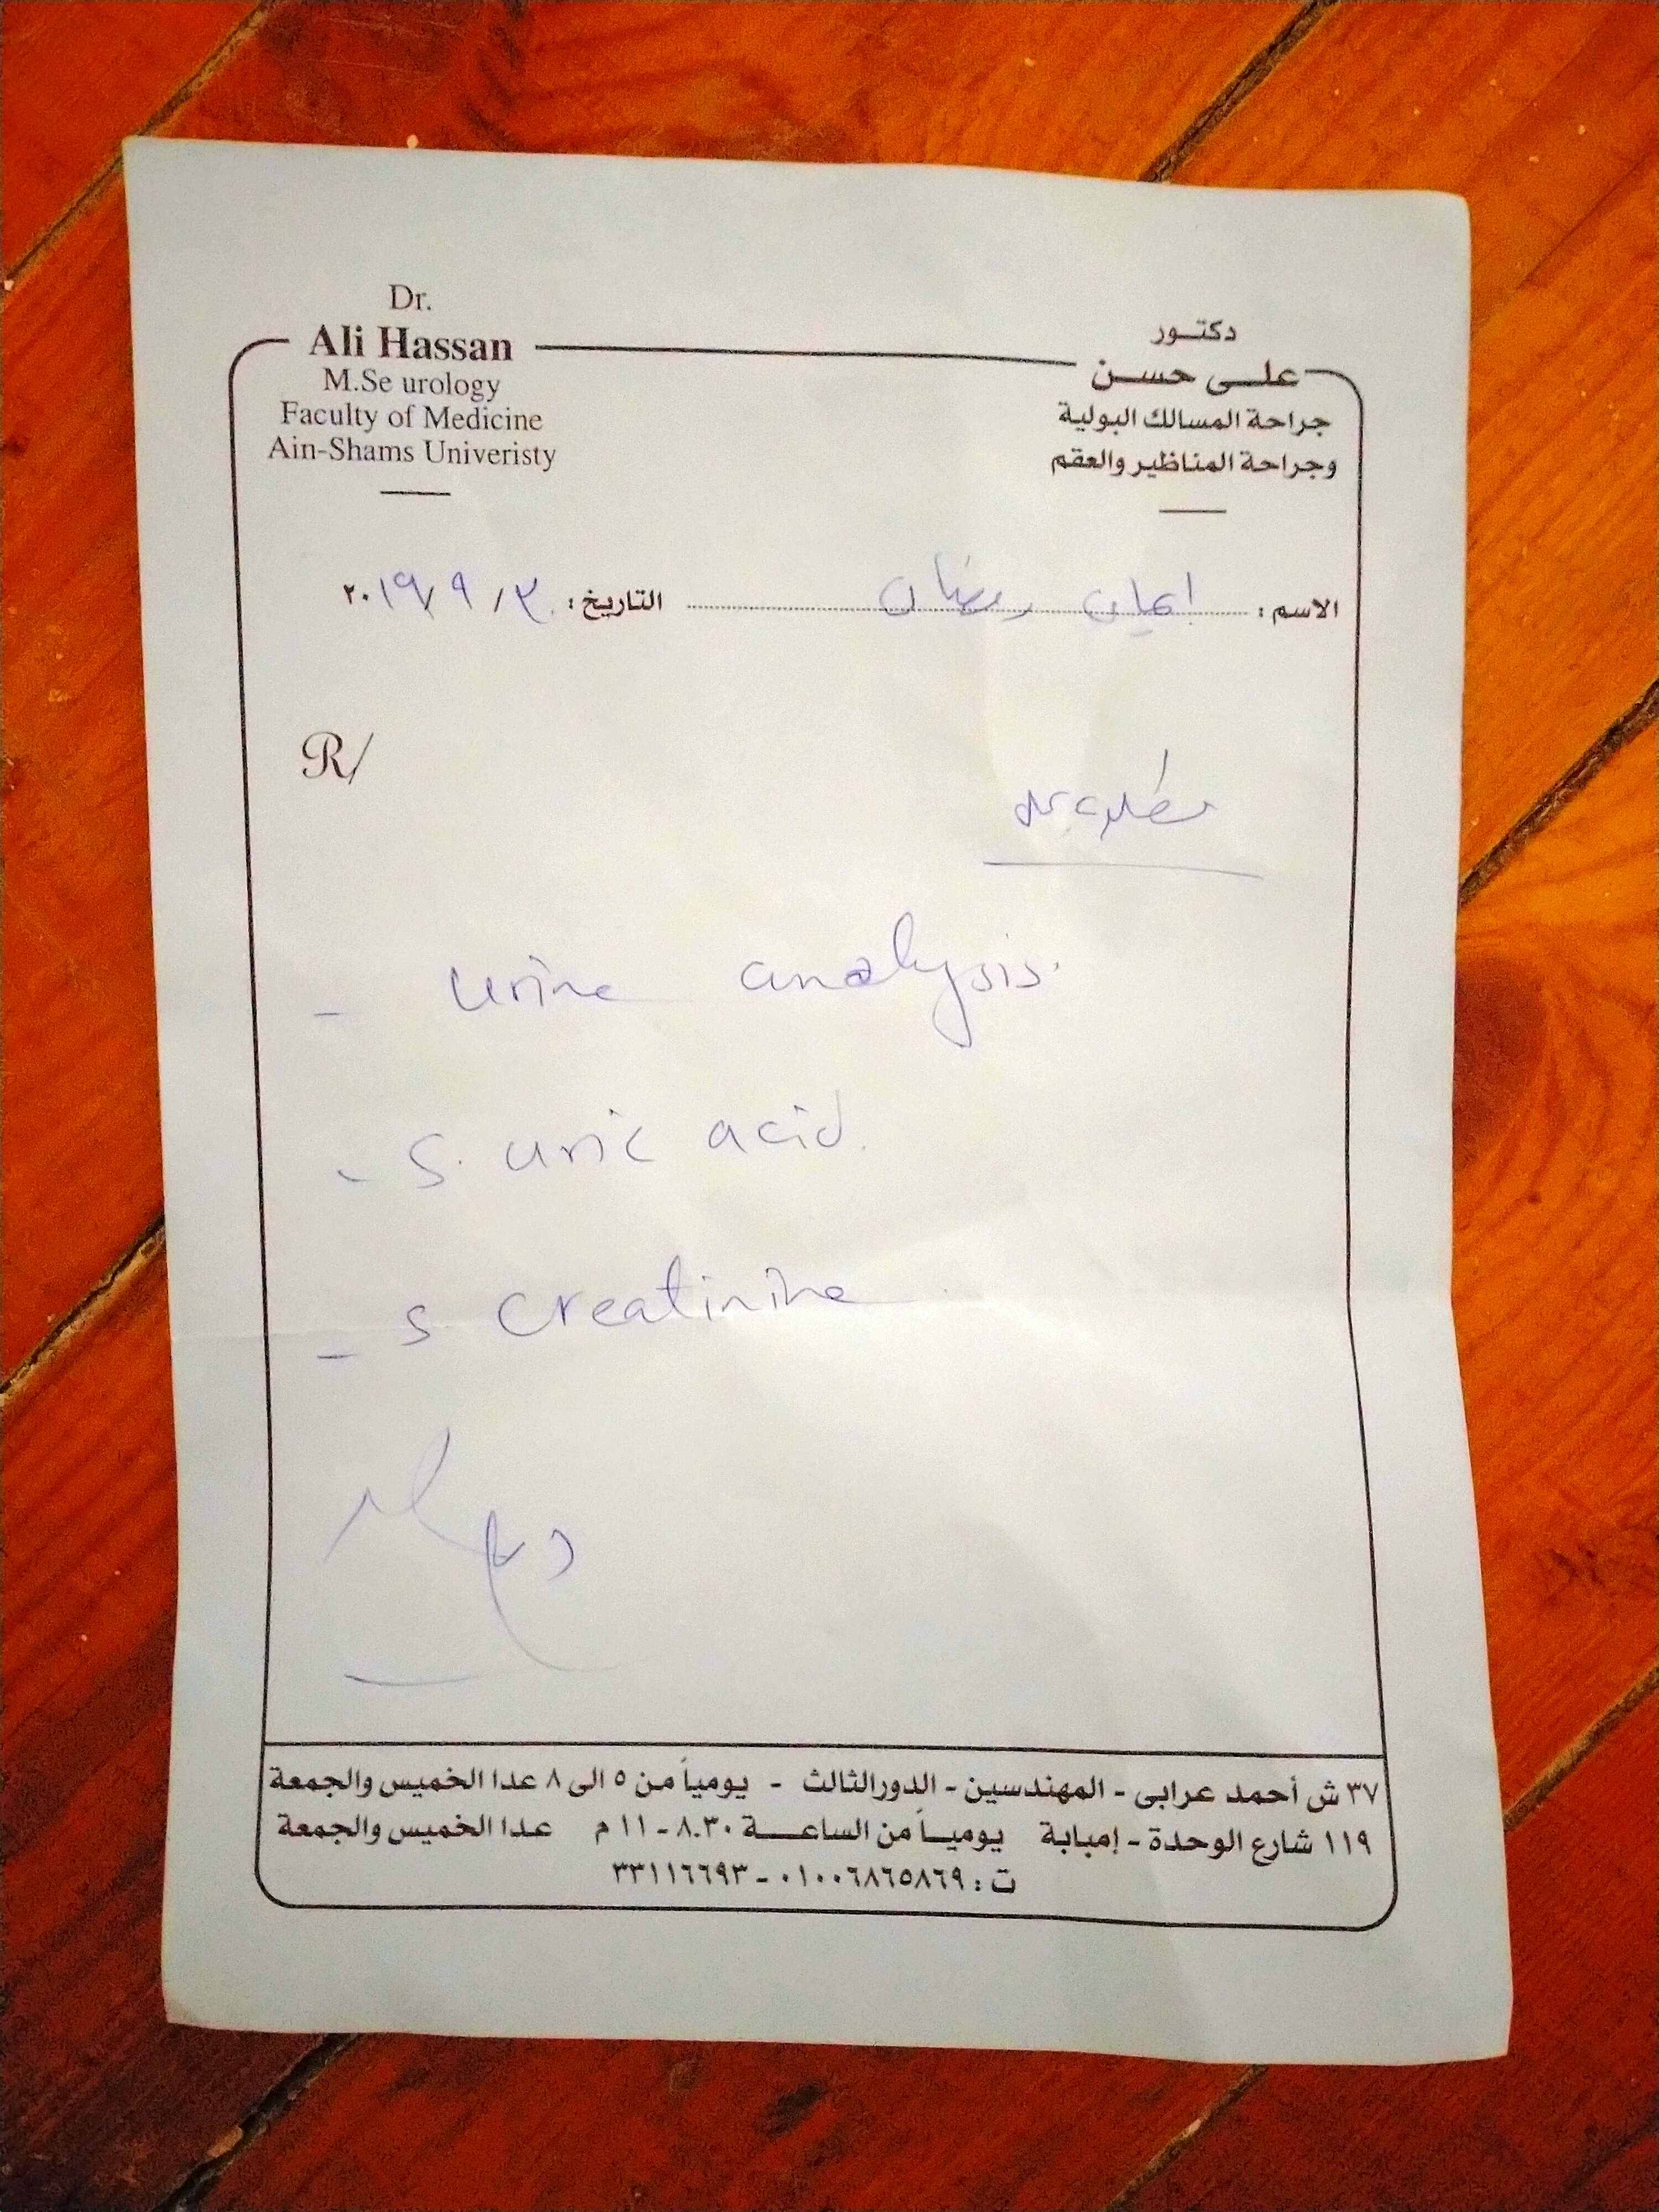 Dr.
Ali Hassan
M.Se urology
Faculty of Medicine
Ain-Shams Univeristy
دكتـور
علـى حسـن
جراحة المسالك البولية
وجراحة المناظير والعقم
الاسم: إيمان رمضان التاريخ: ٣ / ٩ / ٢٠١٩
R/
مطلوب
- urine analysis.
- S. uric acid.
- S. creatinine.
٣٧ ش أحمد عرابى - المهندسين - الدور الثالث - يومياً من ٥ الى ٨ عدا الخميس والجمعة
١١٩ شارع الوحدة - إمبابة يوميـاً من الساعـــة ٨.٣٠ - ١١ م عدا الخميس والجمعة
ت : ٠١٠٠٦٨٦٥٨٦٩ - ٣٣١١٦٦٩٣